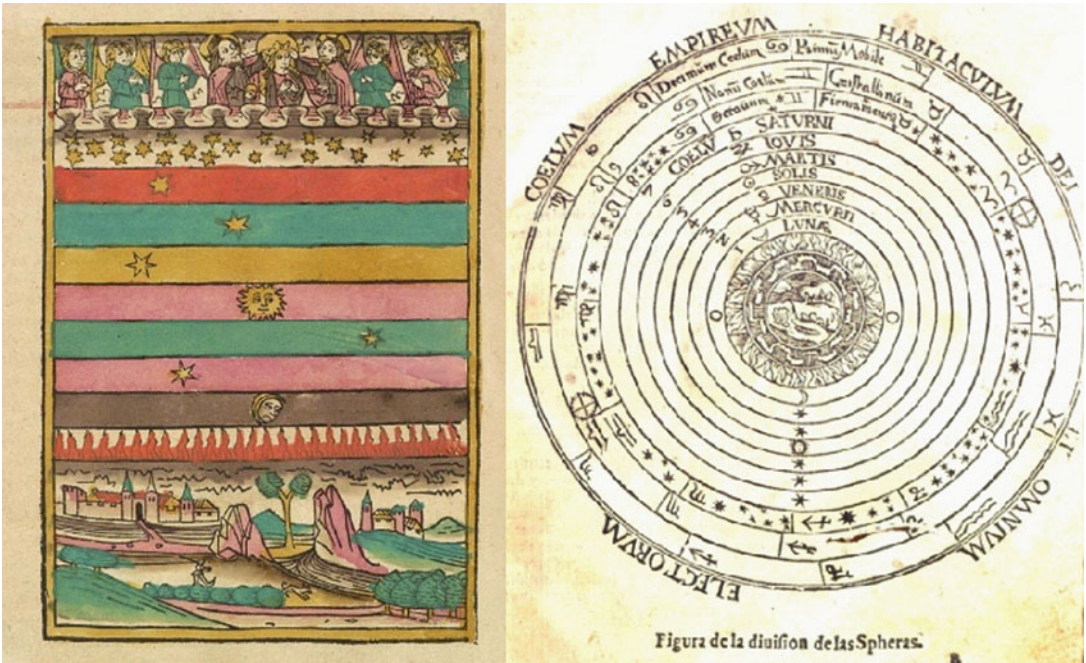 COELVM EMPIREVM HABITACVLVM DEI ET OMNIVM ELECTORVM
Decimum Coelum Primũ Mobile
Nonũ Coelum Cristallinum
Octauum Firmamentũ
COELV SATURNI
IOVIS
MARTIS
SOLIS
VENERIS
MERCVRII
LUNÆ
Figura de la diuision de las Spheras.